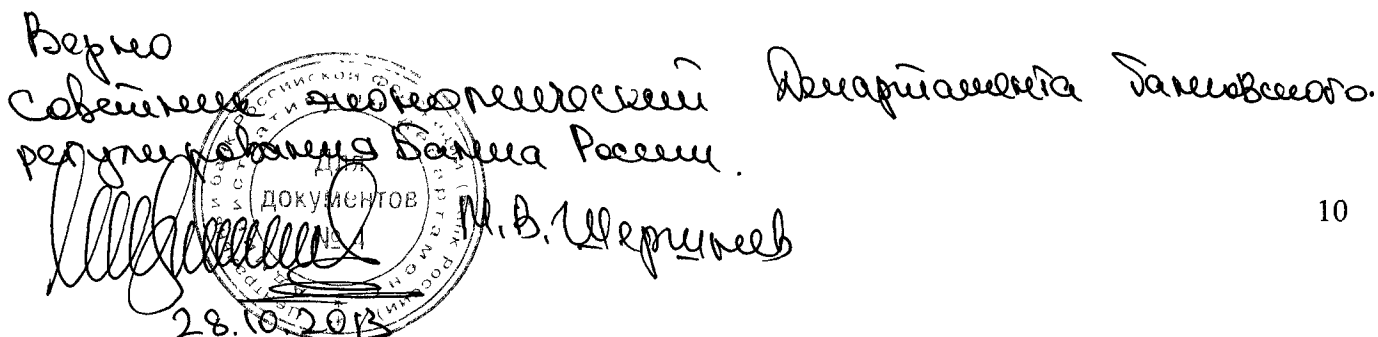 Верно
Советник экономический Департамента банковского
регулирования Банка России.
Для
документов
№ 4
М.В. Шершунев
10
28.10.2013